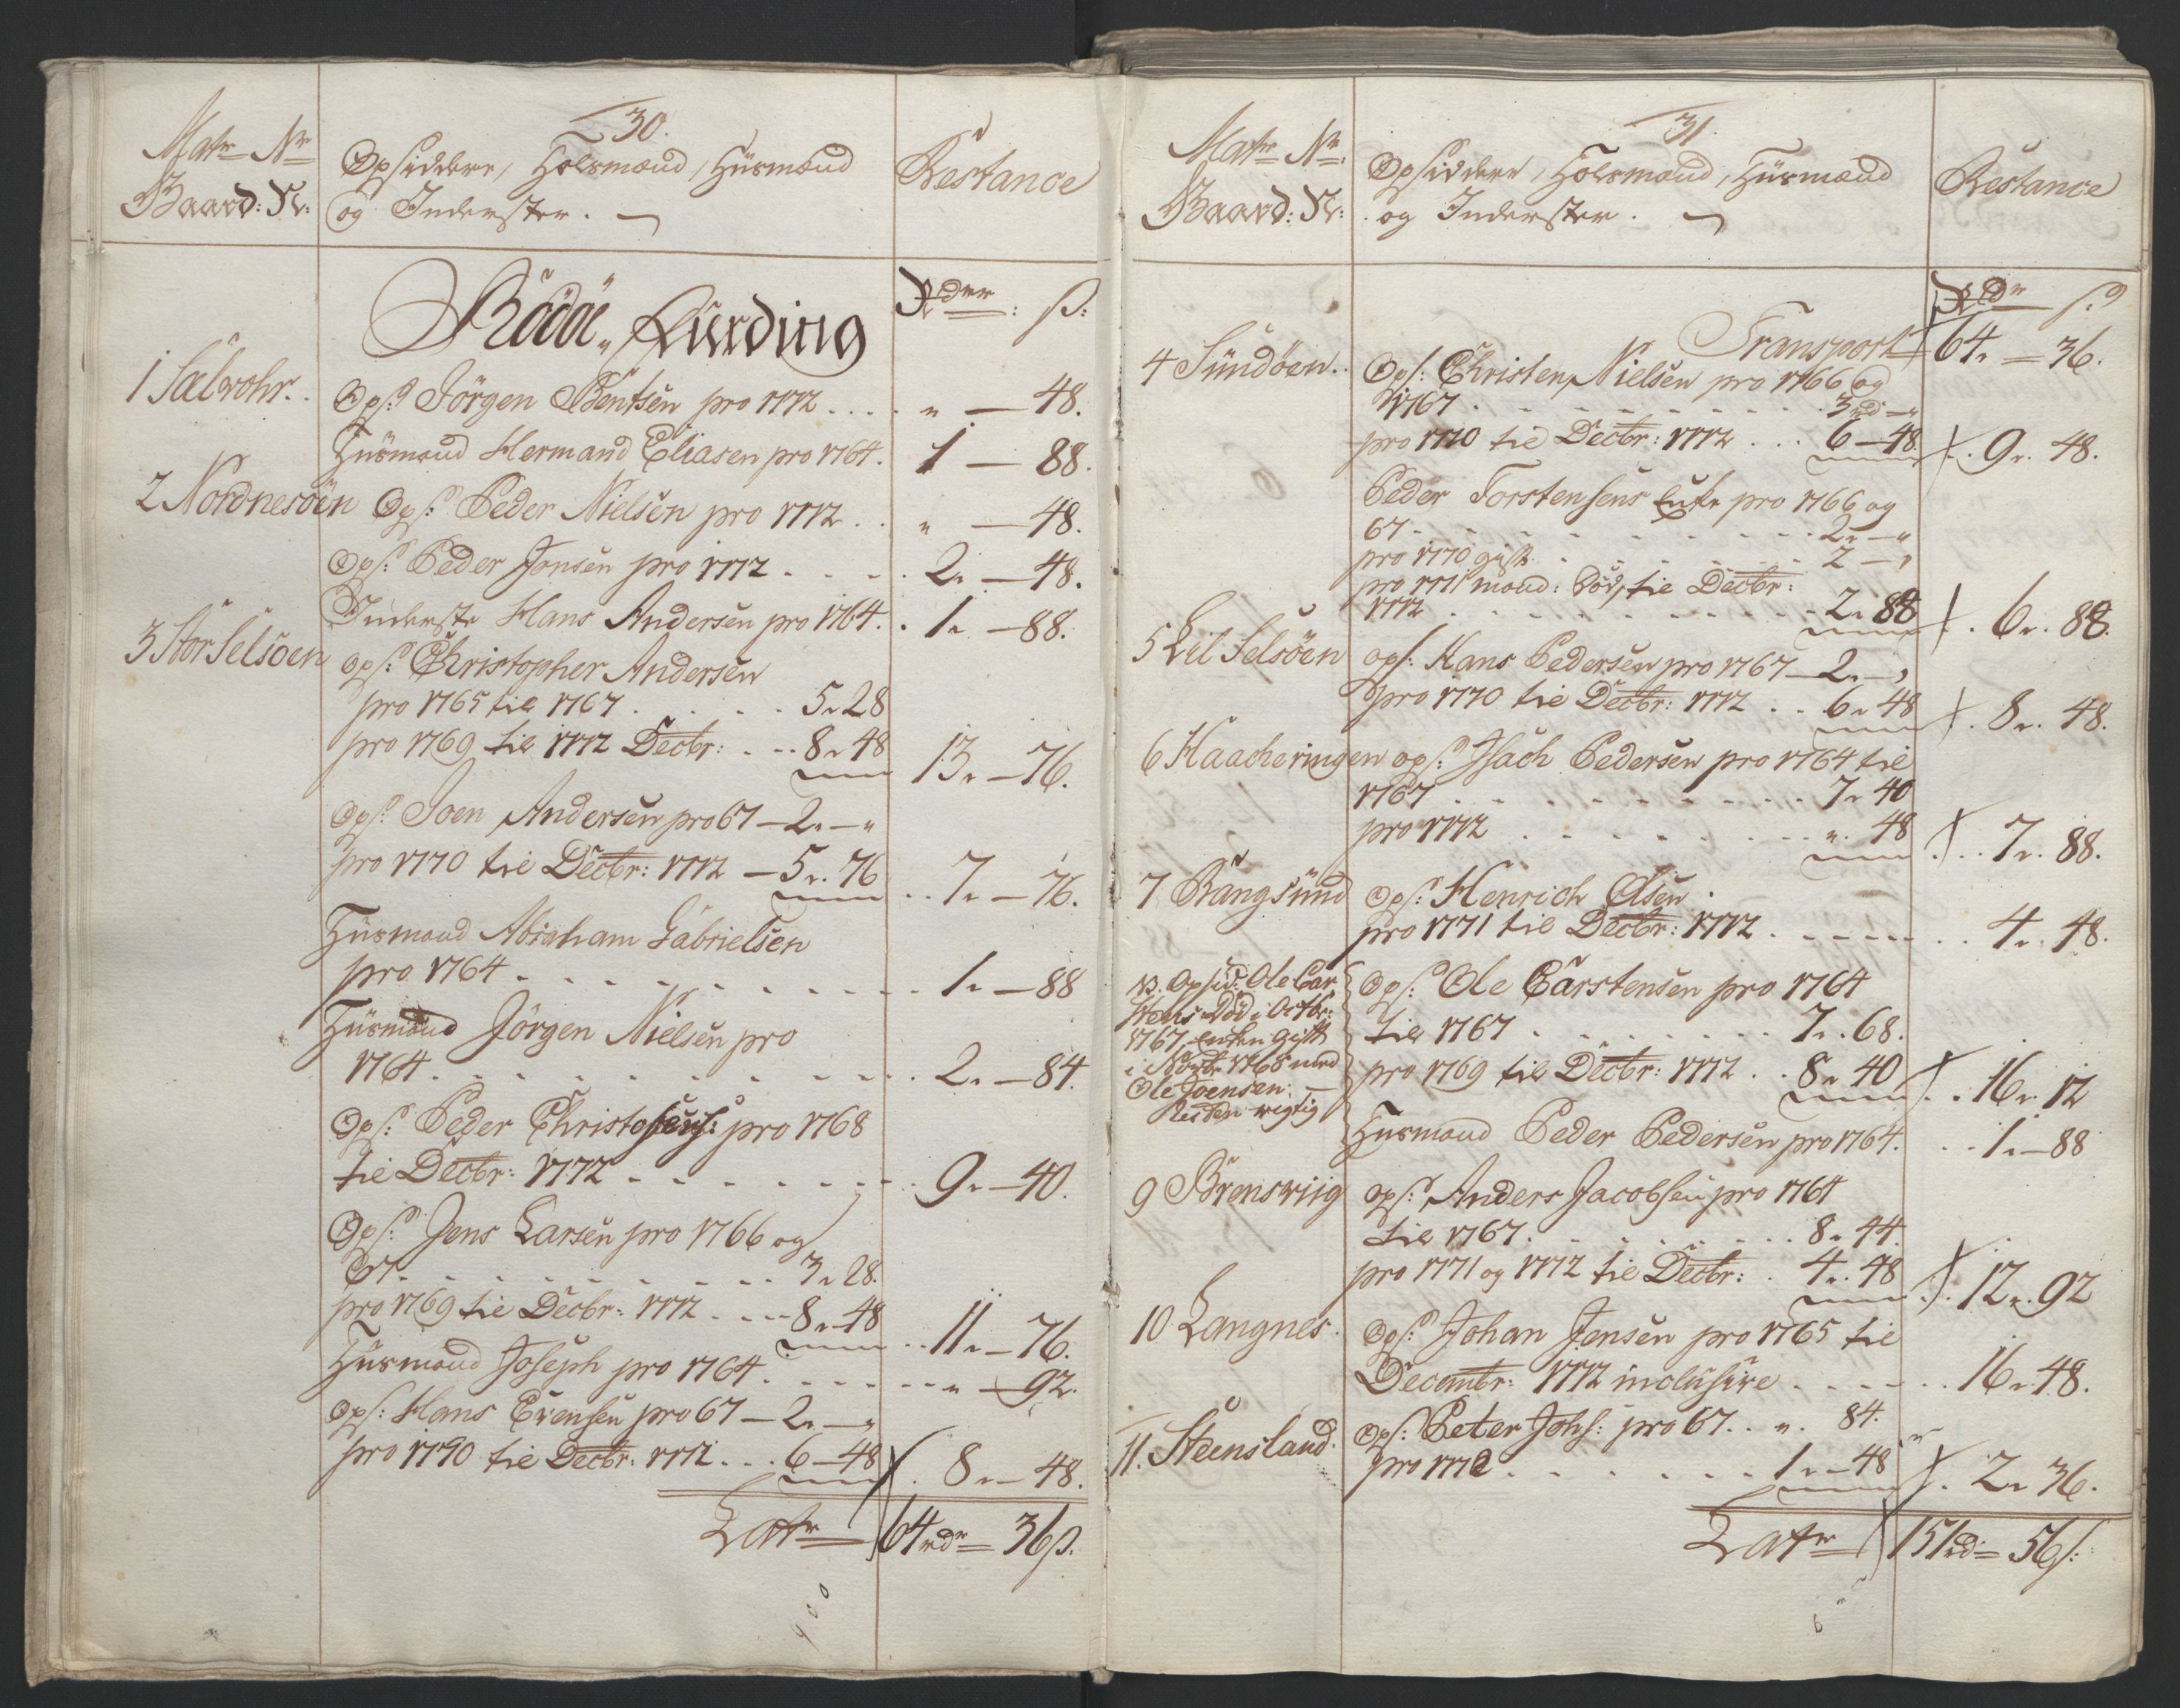 30.
Matr Nr
Gaard: N:
Opsiddere, Holsmænd, Huusmænd
og Inderster. —
Restance
Rödöe Fierding
Rdr: ß:
1 Selwohr.
Ops: Jörgen Bentsen pro 1772 . . . „ — 48.
Huusmand Hermand Eliasen pro 1764. 1 — 88.
2 Nordnesöen Ops: Peder Nielsen pro 1772 . . „ — 48.
Ops: Peder Jonsen pro 1772 . . . . 2. — 48.
Inderste Hans Andersen pro 1764. . 1. — 88.
3 Stor Selsöen Ops: Christopher Andersen
pro 1765 til 1767 . . . . . 5. 28
pro 1769 til 1772 Decbr: . . . 8. 48 13. — 76.
Ops: Joen Andersen pro 67 — 2. — „
pro 1770 til Decbr: 1772 — 5. 76 . . 7. — 76.
Huusmand Abraham Gabrielsen
pro 1764 . . . . . . . . . 1. — 88
Huusmand Jörgen Nielsen pro
1764 . . . . . . . . . . 2. — 84.
Ops: Peder Christophers: pro 1768
til Decbr: 1772 . . . . . . . 9. — 40.
Ops: Jens Larsen pro 1766 og
67 . . . . . . . . . 3. 28.
pro 1769 til Decbr: 1772 . . . 8. 48 . . 11. — 76.
Huusmand Joseph pro 1764 . . . . . . . „ — 92.
Ops: Hans Evensen pro 67 — 2. — „
pro 1770 til Decbr: 1772 . . . 6 — 48 . 8. — 48.
Latr 64 rdr 36 ß.
31.
Matr Nr:
Gaard: N:
Opsiddere, Holsmænd, Huusmænd
og Inderster. —
Restance
Rdr ß
Transport 64. — 36.
4 Sundöen . . Ops: Christen Nielsen pro 1766 og
1767 . . . . . . . . . 3 rd — „
pro 1770 til Decbr: 1772 . . . 6 — 48. . . 9. 48.
Peder Torstensens Enke pro 1766 og
67 . . . . . . . . . 2. — „
pro 1770 gift . . . . . . . 2 — „
pro 1771 mand: död, til Decbr:
1772 . . . . . . . . . 2. 88 . 6. 88.
5 Lil Selsöen ops: Hans Pedersen pro 1767 — 2. — „
pro 1770 til Decbr: 1772 . . 6. 48 . 8. 48.
6 Haacheringen ops: Isach Pedersen pro 1764 til
1767 . . . . . . . . . 7. 40
pro 1772 . . . . . . . . „. 48 . . 7. 88.
7 Rangsund Ops: Henrich Olsen .
pro 1771 til Decbr: 1772 . . . . . . . 4. 48.
NB. Opsid: Ole Car
stens Död i Octbr:
1767, enken gift
i Novbr 1768 med
Ole Joensen. —
Resten rigtig
Ops: Ole Carstensen pro 1764
til 1767 . . . . . . . 7. 68.
pro 1769 til Decbr: 1772 . . 8. 40 . . 16. 12
Huusmand Peder Pedersen pro 1764. . . 1. — 88
9 Brenswiig ops: Anders Jacobsen pro 1764
til 1767 . . . . . . . . 8. 44.
pro 1771 og 1772 til Decbr: . 4. 48 . 12. 92
10 Langnes. Ops: Johan Jensen pro 1765 til
Decembr: 1772 inclusive . . . . . . 16. 48.
11. Steensland. Ops: Peter Johs: pro 67 . . „. 84.
pro 1772 . . . . . . . . 1. — 48 . 2. 36.
Latr 151 rd 56 ß: